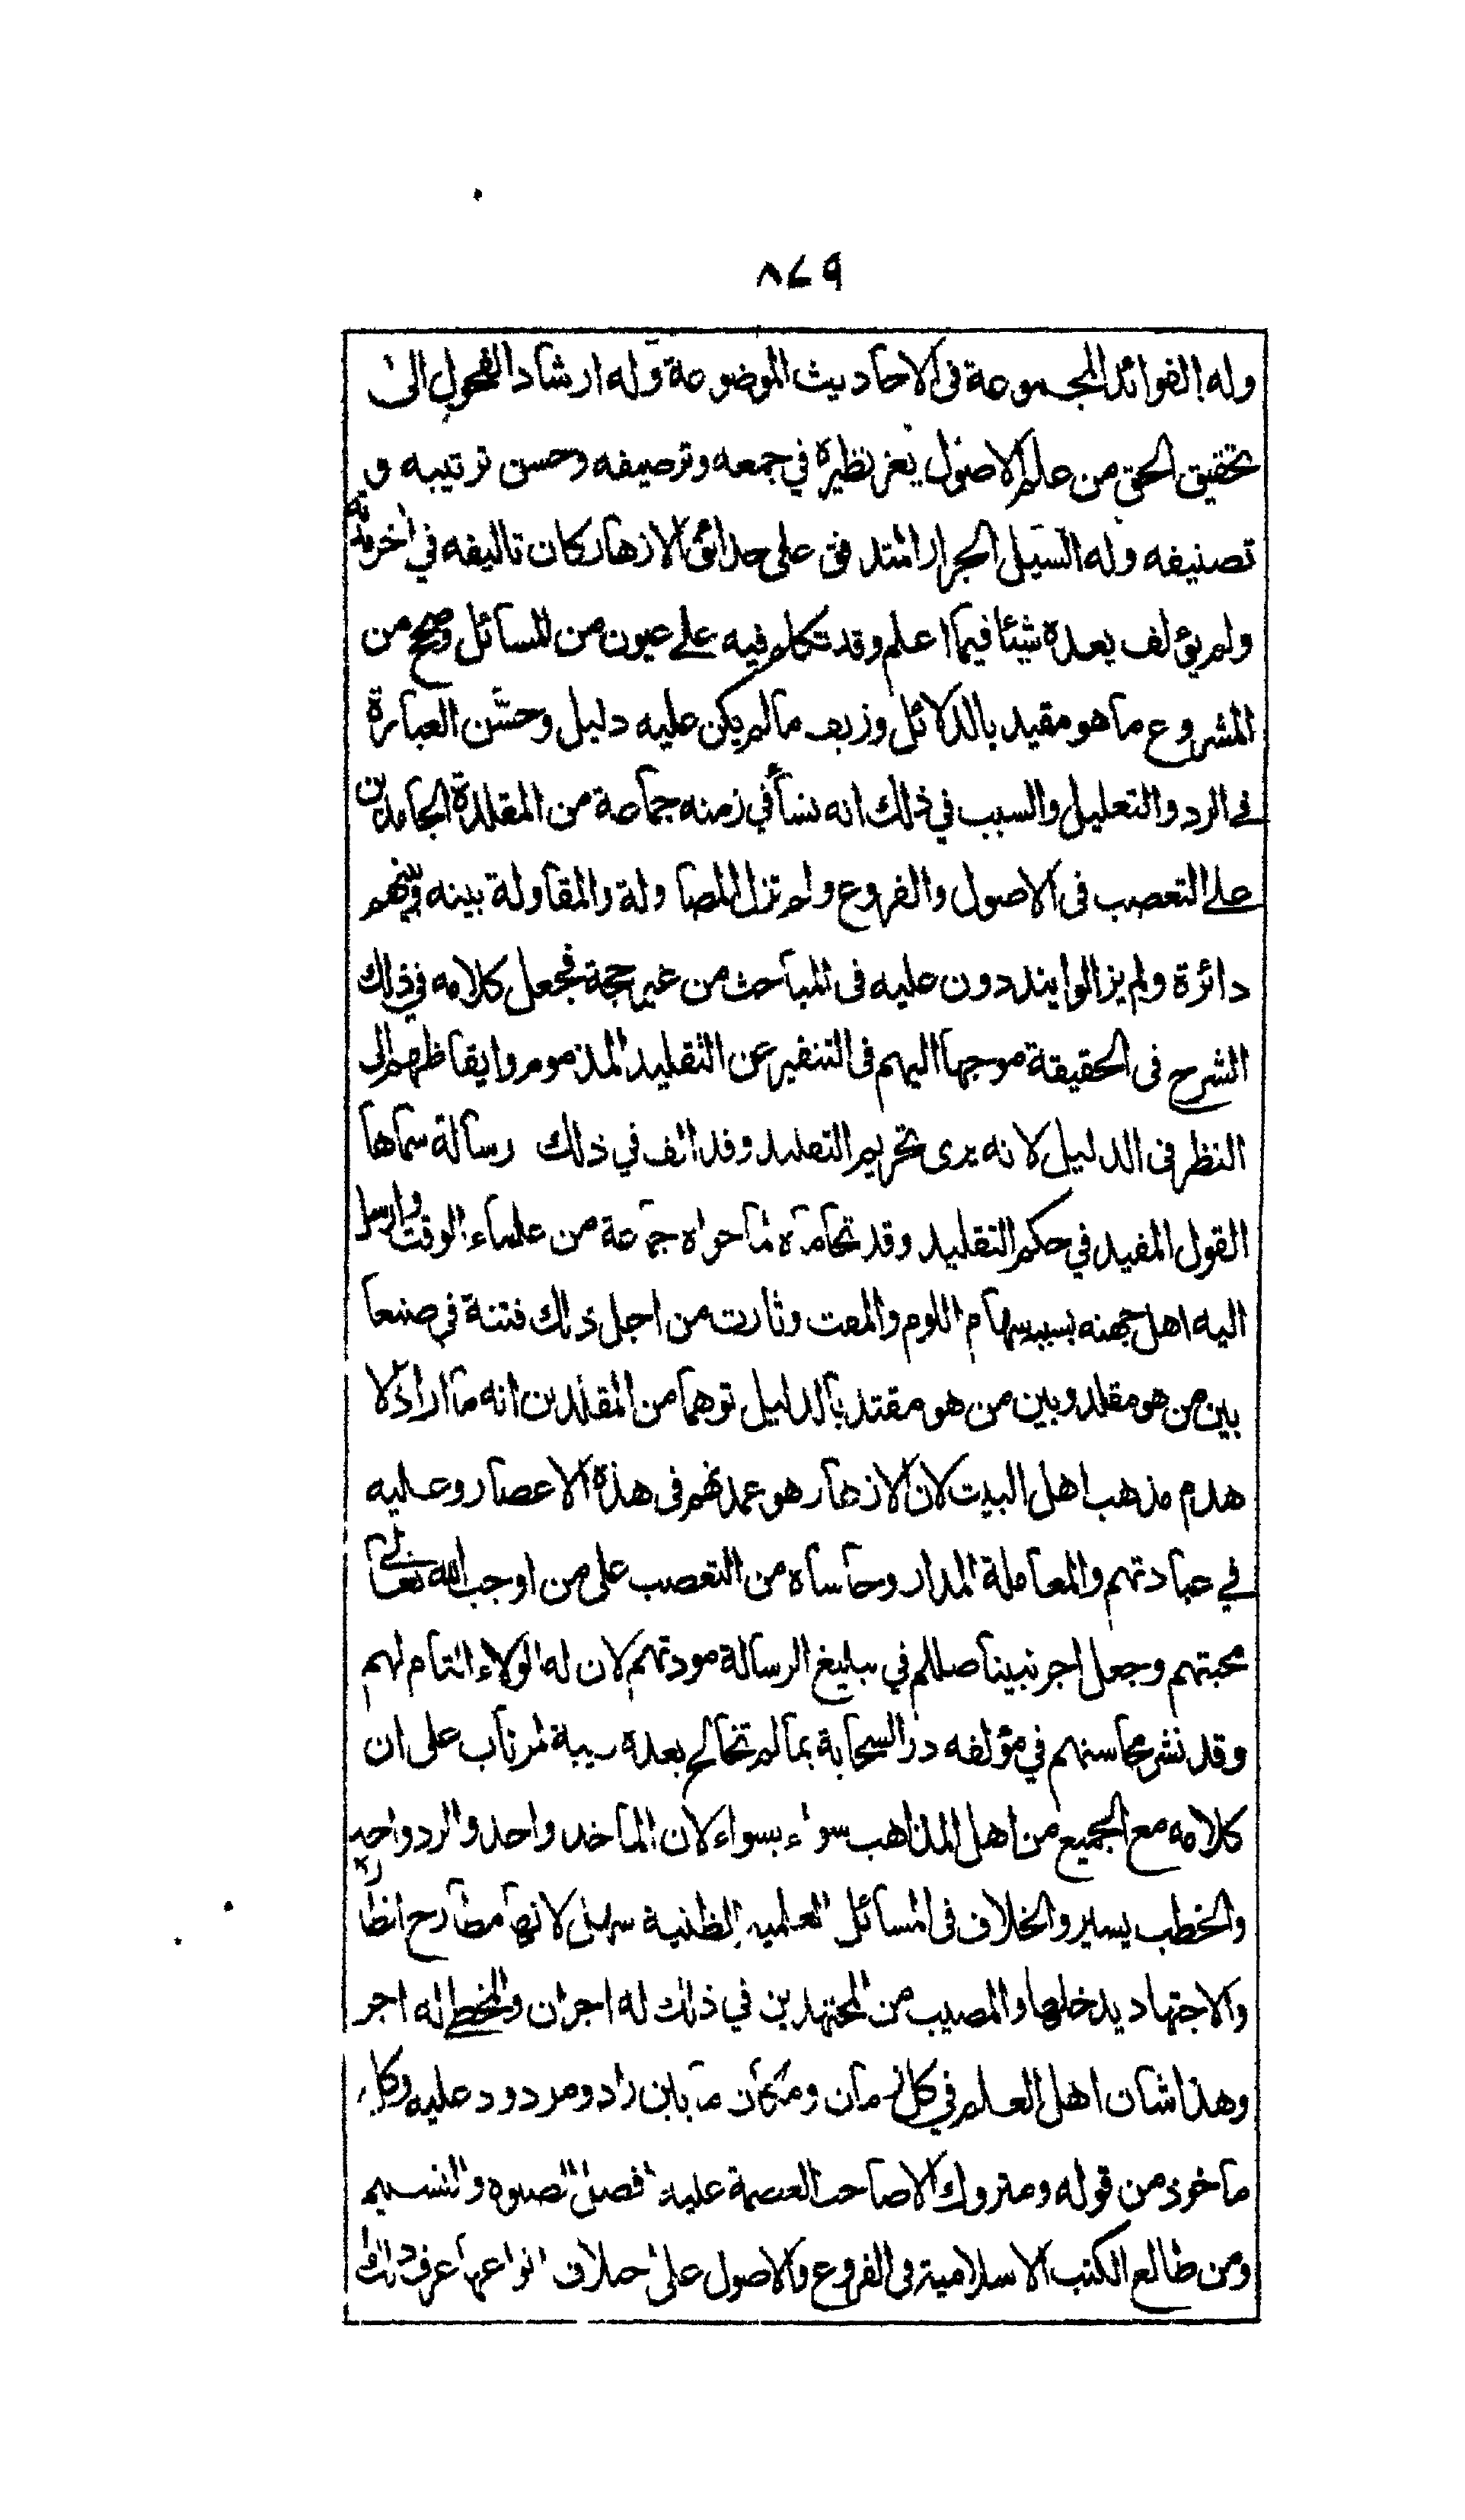 ٨٧٩
وله الفوائد المجموعة فى الاحاديث الموضوعة وله ارشاد الفحول الى
تحقيق الحق من علم الاصول يعز نظيره في جمعه وترصيفه وحسن ترتيبه و
تصنيفه وله السيل الجرار المتدفق على حدائق الازهار كان تاليفه في اخر مدته
ولم يؤلف بعده شيئا فيما اعلم وقد تكلم فيه على عيون من المسائل وصحح من
المشروع ما هو مقيد بالدلائل وزيف مالم يكن عليه دليل وحسن العبارة
في الرد والتعليل والسبب في ذلك انه نشأ في زمنه جماعة من المقلدة الجامدين
على التعصب فى الاصول والفروع ولم تزل المصاولة والمقاولة بينه وبينهم
دائرة ولم يزالوا ينددون عليه فى المباحث من غير حجة فجعل كلامه في ذلك
الشرح فى الحقيقة موجها اليهم فى التنفير عن التقليد المذموم وايقاظهم الى
النظر فى الدليل لانه يرى تحريم التقليد وقد الف في ذلك رسالة سماها
القول المفيد في حكم التقليد وقد تحاماه لما حواه جماعة من علماء الوقت وارسل
اليه اهل جهته بسببه سهام اللوم والمقت وثارت من اجل ذلك فتنة في صنعا
بين من هو مقلد وبين من هو مقتد بالدليل توهما من المقلدين انه ما اراد الا
هدم مذهب اهل البيت لان الازهار هو عمدتهم فى هذه الاعصار وعليه
في عبادتهم والمعاملة المدار وحاشاه من التعصب على من اوجب الله تعالى
محبتهم وجعل اجر نبينا صللم في تبليغ الرسالة مودتهم لان له الولاء التام لهم
وقد نشر محاسنهم في مؤلفه در السحابة بما لم تخالج بعده ريبة لمرتاب على ان
كلامه مع الجميع من اهل المذاهب سواء بسواء لان المأخد واحد والرد واحد
والخطب يسير والخلاف فى المسائل العلميه الظنية سهل لانها مطارح انظار
والاجتهاد يدخلها والمصيب من المجتهدين في ذلك له اجران والمخطى له اجر
وهذا شان اهل العلم في كل زمان ومكان ما بين راد ومردود عليه وكل
ماخوذ من قوله ومتروك الا صاحب العصمة عليه افضل الصلوة والتسليم
ومن طالع الكتب الاسلامية فى الفروع والاصول على اختلاف انواعها عرف ذلك